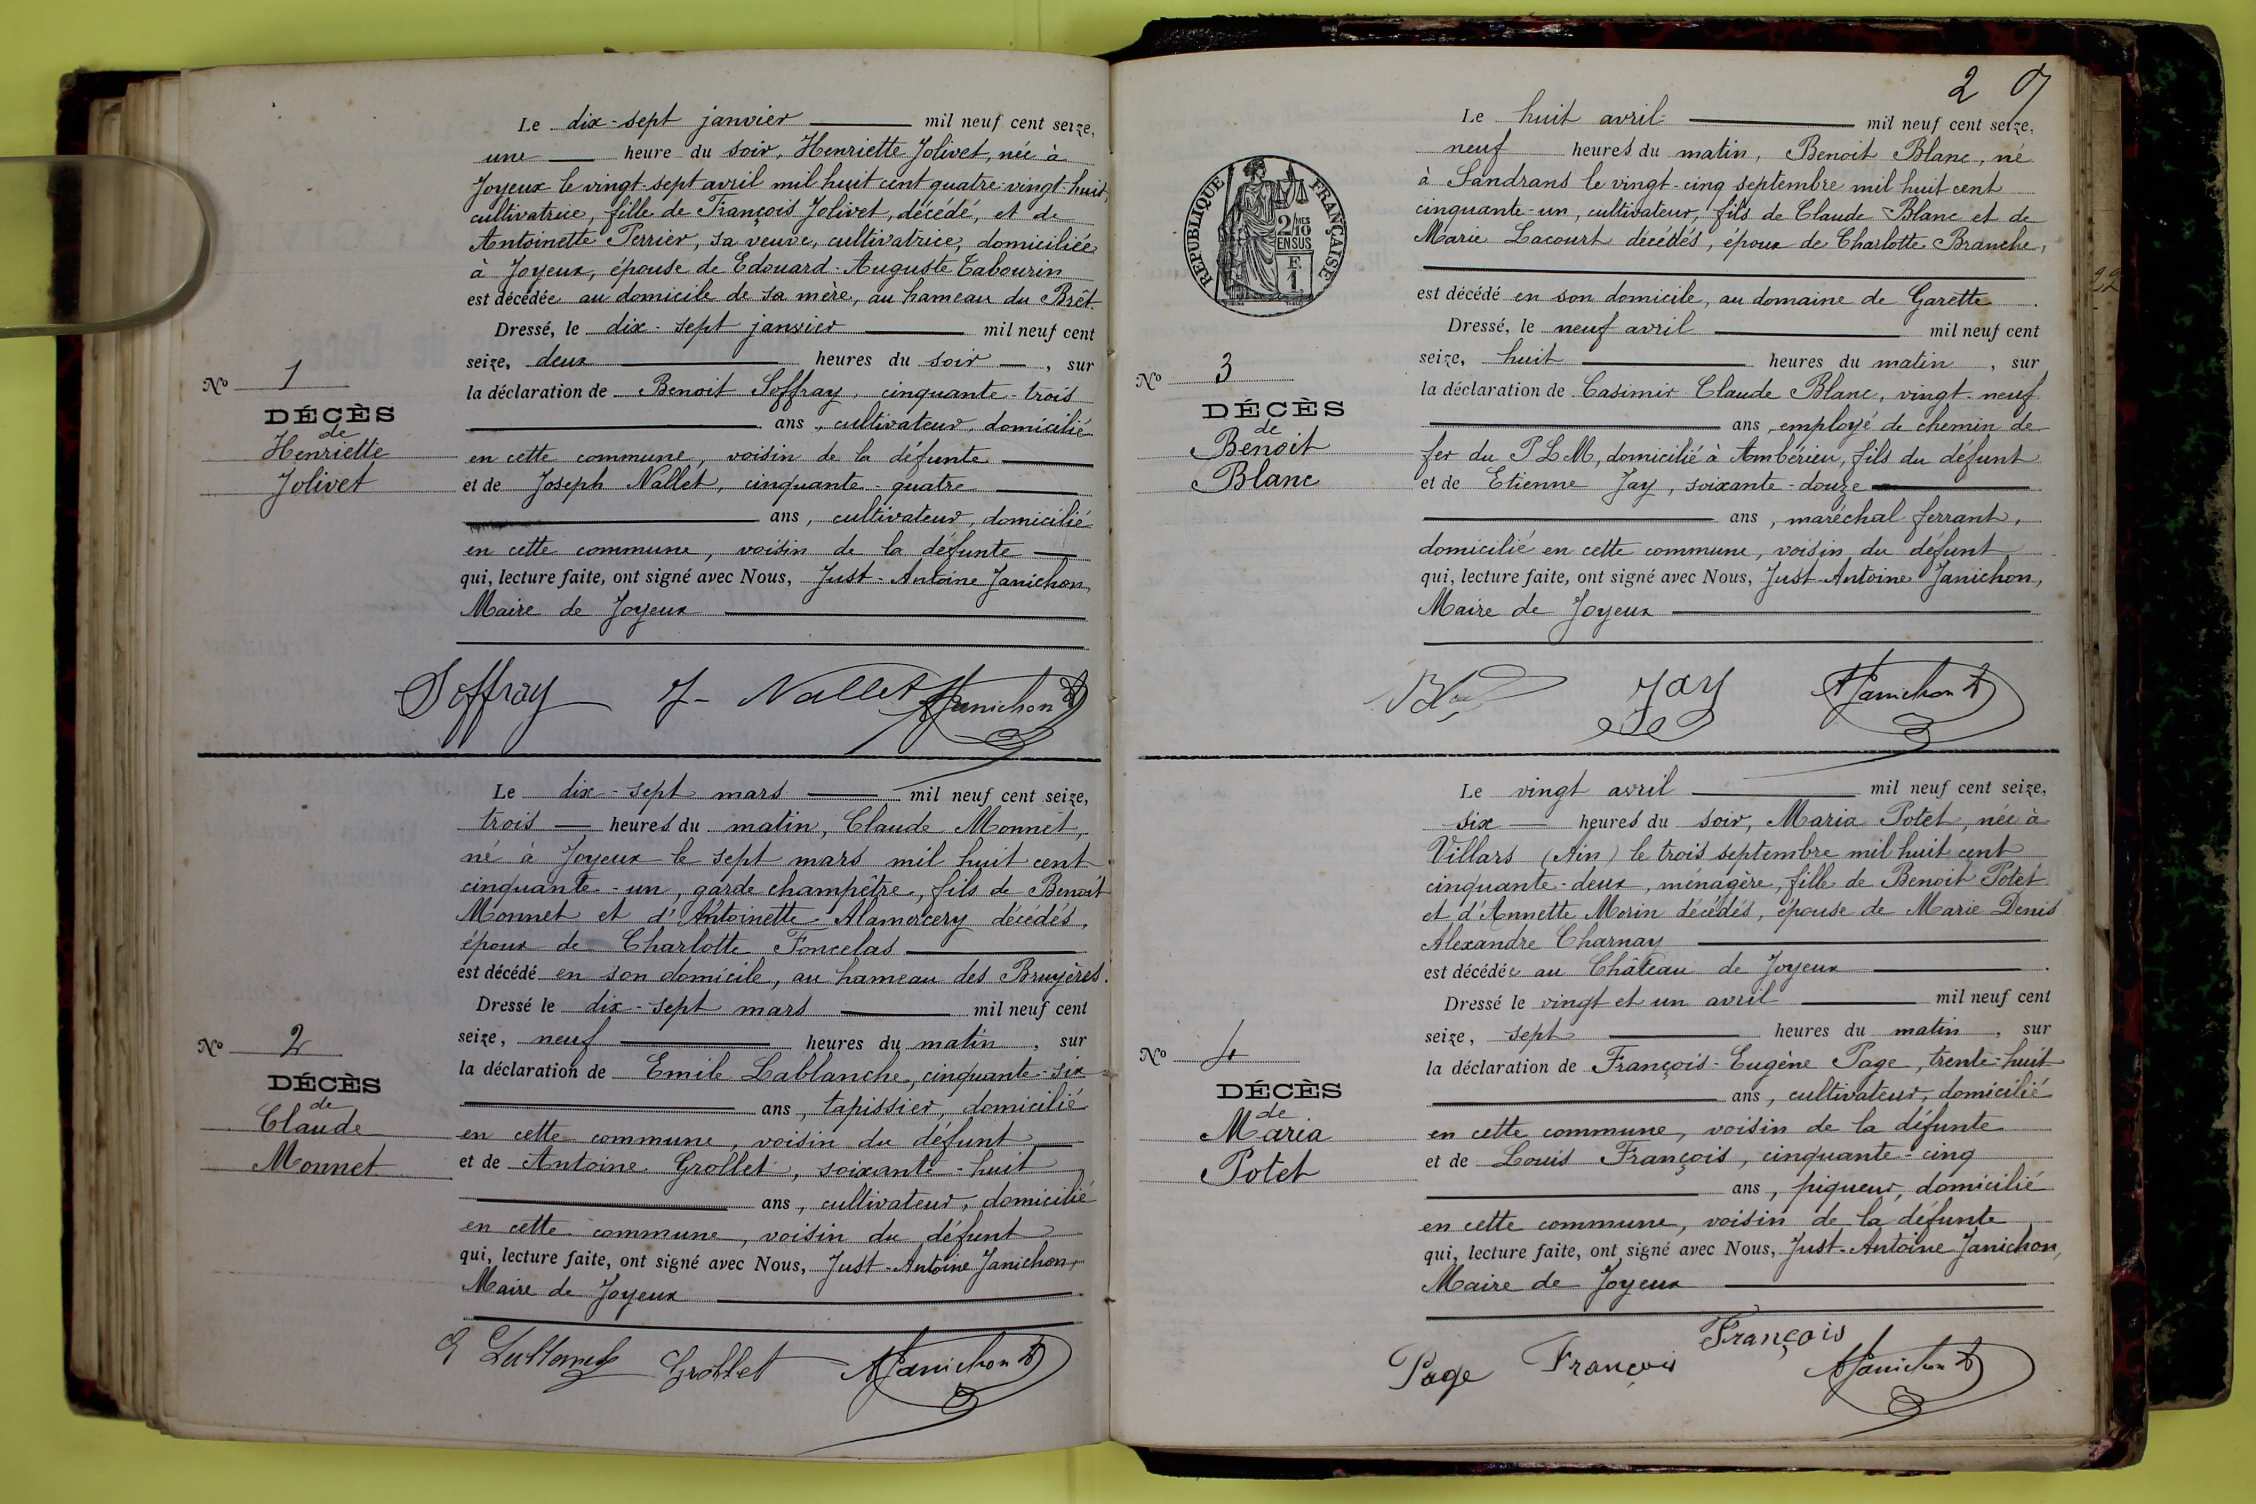 Le dix-sept janvier mil neuf cent seize,
une heure du soir, Henriette Jolivet, née à
Joyeux le vingt-sept avril mil huit cent quatre-vingt-huit,
cultivatrice, fille de François Jolivet, décédé, et de
Antoinette Perrier, sa veuve, cultivatrice, domiciliée
à Joyeux, épouse de Edouard-Auguste Tabourin
est décédée au domicile de sa mère, au hameau du Brêt.
Dressé, le dix-sept janvier mil neuf cent
seize, deux heures du soir, sur
la déclaration de Benoit Soffray, cinquante-trois
ans, cultivateur, domicilié
en cette commune, voisin de la défunte
et de Joseph Nallet, cinquante-quatre
ans, cultivateur, domicilié
en cette commune, voisin de la défunte
qui, lecture faite, ont signé avec Nous, Just-Antoine Janichon,
Maire de Joyeux
No 1
DÉCÈS
de
Henriette
Jolivet
Soffray J- Nallet Janichon
Le dix-sept mars mil neuf cent seize,
trois heures du matin, Claude Monnet,
né à Joyeux le sept mars mil huit cent
cinquante-un, garde champêtre, fils de Benoît
Monnet et d'Antoinette Alamercery décédés,
époux de Charlotte Foncelas
est décédé en son domicile, au hameau des Bruyères.
Dressé le dix-sept mars mil neuf cent
seize, neuf heures du matin, sur
la déclaration de Emile Lablanche, cinquante-six
ans, tapissier, domicilié
en cette commune, voisin du défunt
et de Antoine Grollet, soixante-huit
ans, cultivateur, domicilié
en cette commune, voisin du défunt
qui, lecture faite, ont signé avec Nous, Just-Antoine Janichon,
Maire de Joyeux
No 2
DÉCÈS
de
Claude
Monnet
Grollet Janichon
2
RÉPUBLIQUE FRANÇAISE
2 MES
10
EN SUS
F
1
Le huit avril mil neuf cent seize,
neuf heures du matin, Benoit Blanc, né
à Sandrans le vingt-cinq septembre mil huit cent
cinquante-un, cultivateur, fils de Claude Blanc et de
Marie Lacourt décédés, époux de Charlotte Branche,
est décédé en son domicile, au domaine de Garette.
Dressé, le neuf avril mil neuf cent
seize, huit heures du matin, sur
la déclaration de Casimir Claude Blanc, vingt-neuf
ans, employé de chemin de
fer du P L M, domicilié à Ambérieu, fils du défunt
et de Etienne Jay, soixante-douze
ans, maréchal ferrant,
domicilié en cette commune, voisin du défunt,
qui, lecture faite, ont signé avec Nous, Just-Antoine Janichon,
Maire de Joyeux
No 3
DÉCÈS
de
Benoit
Blanc
Jay Janichon
Le vingt avril mil neuf cent seize,
six heures du soir, Maria Potet, née à
Villars (Ain) le trois septembre mil huit cent
cinquante-deux, ménagère, fille de Benoit Potet
et d'Annette Morin décédés, épouse de Marie Denis
Alexandre Charnay
est décédée au Château de Joyeux.
Dressé le vingt et un avril mil neuf cent
seize, sept heures du matin, sur
la déclaration de François-Eugène Page, trente-huit
ans, cultivateur, domicilié
en cette commune, voisin de la défunte
et de Louis François, cinquante-cinq
ans, piqueur, domicilié
en cette commune, voisin de la défunte
qui, lecture faite, ont signé avec Nous, Just-Antoine Janichon,
Maire de Joyeux
No 4
DÉCÈS
de
Maria
Potet
François
Page François Janichon